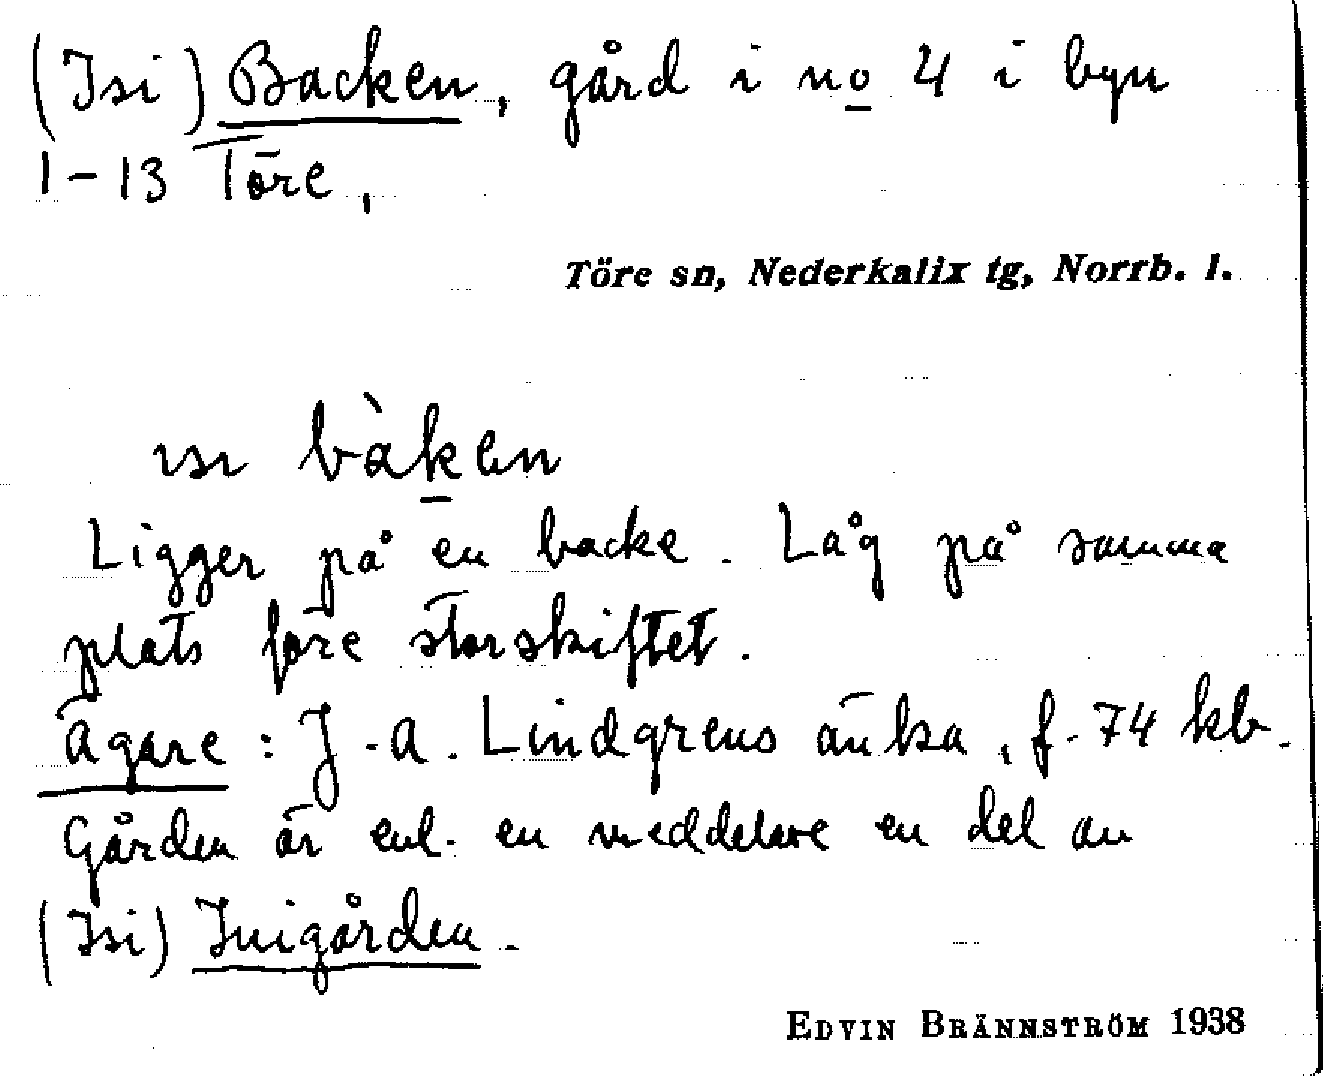 (Isi) Backen, gård i no 4 i byn
1-13 Töre,
Töre sn, Nederkalix tg, Norrb. l.
ısı bàken
Ligger på en backe. Låg på samma
plats före storskiftet.
Ägare: J.A. Lindgrens änka, f. 74 kb.
Gården är enl. en meddelare en del av
(Isi) Inigården.
EDVIN BRÄNNSTRÖM 1938